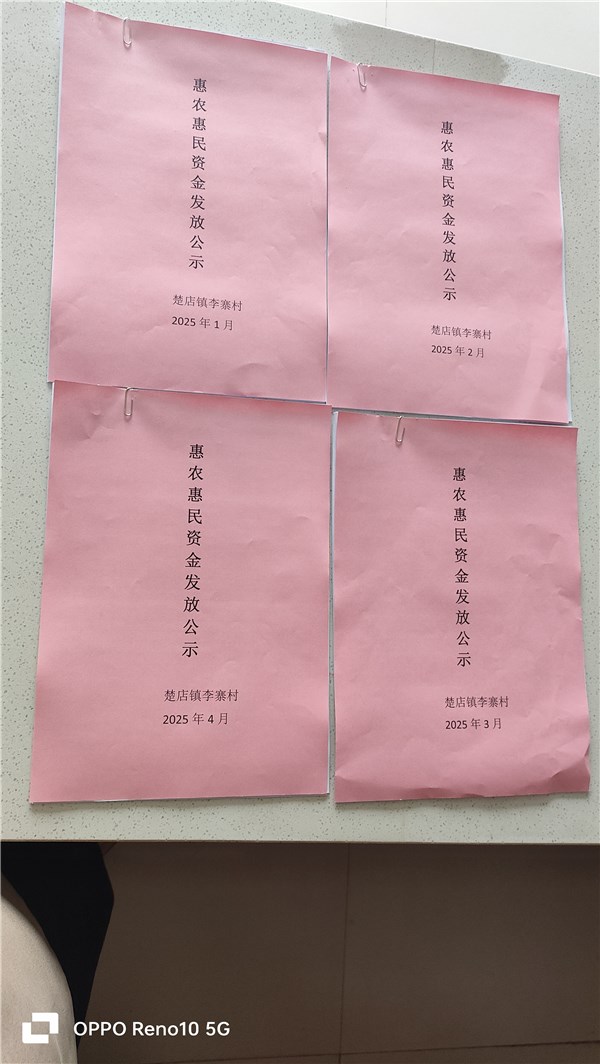 惠农惠民资金发放公示
楚店镇李寨村
2025年1月
惠农惠民资金发放公示
楚店镇李寨村
2025年2月
惠农惠民资金发放公示
楚店镇李寨村
2025年4月
惠农惠民资金发放公示
楚店镇李寨村
2025年3月
OPPO Reno10 5G